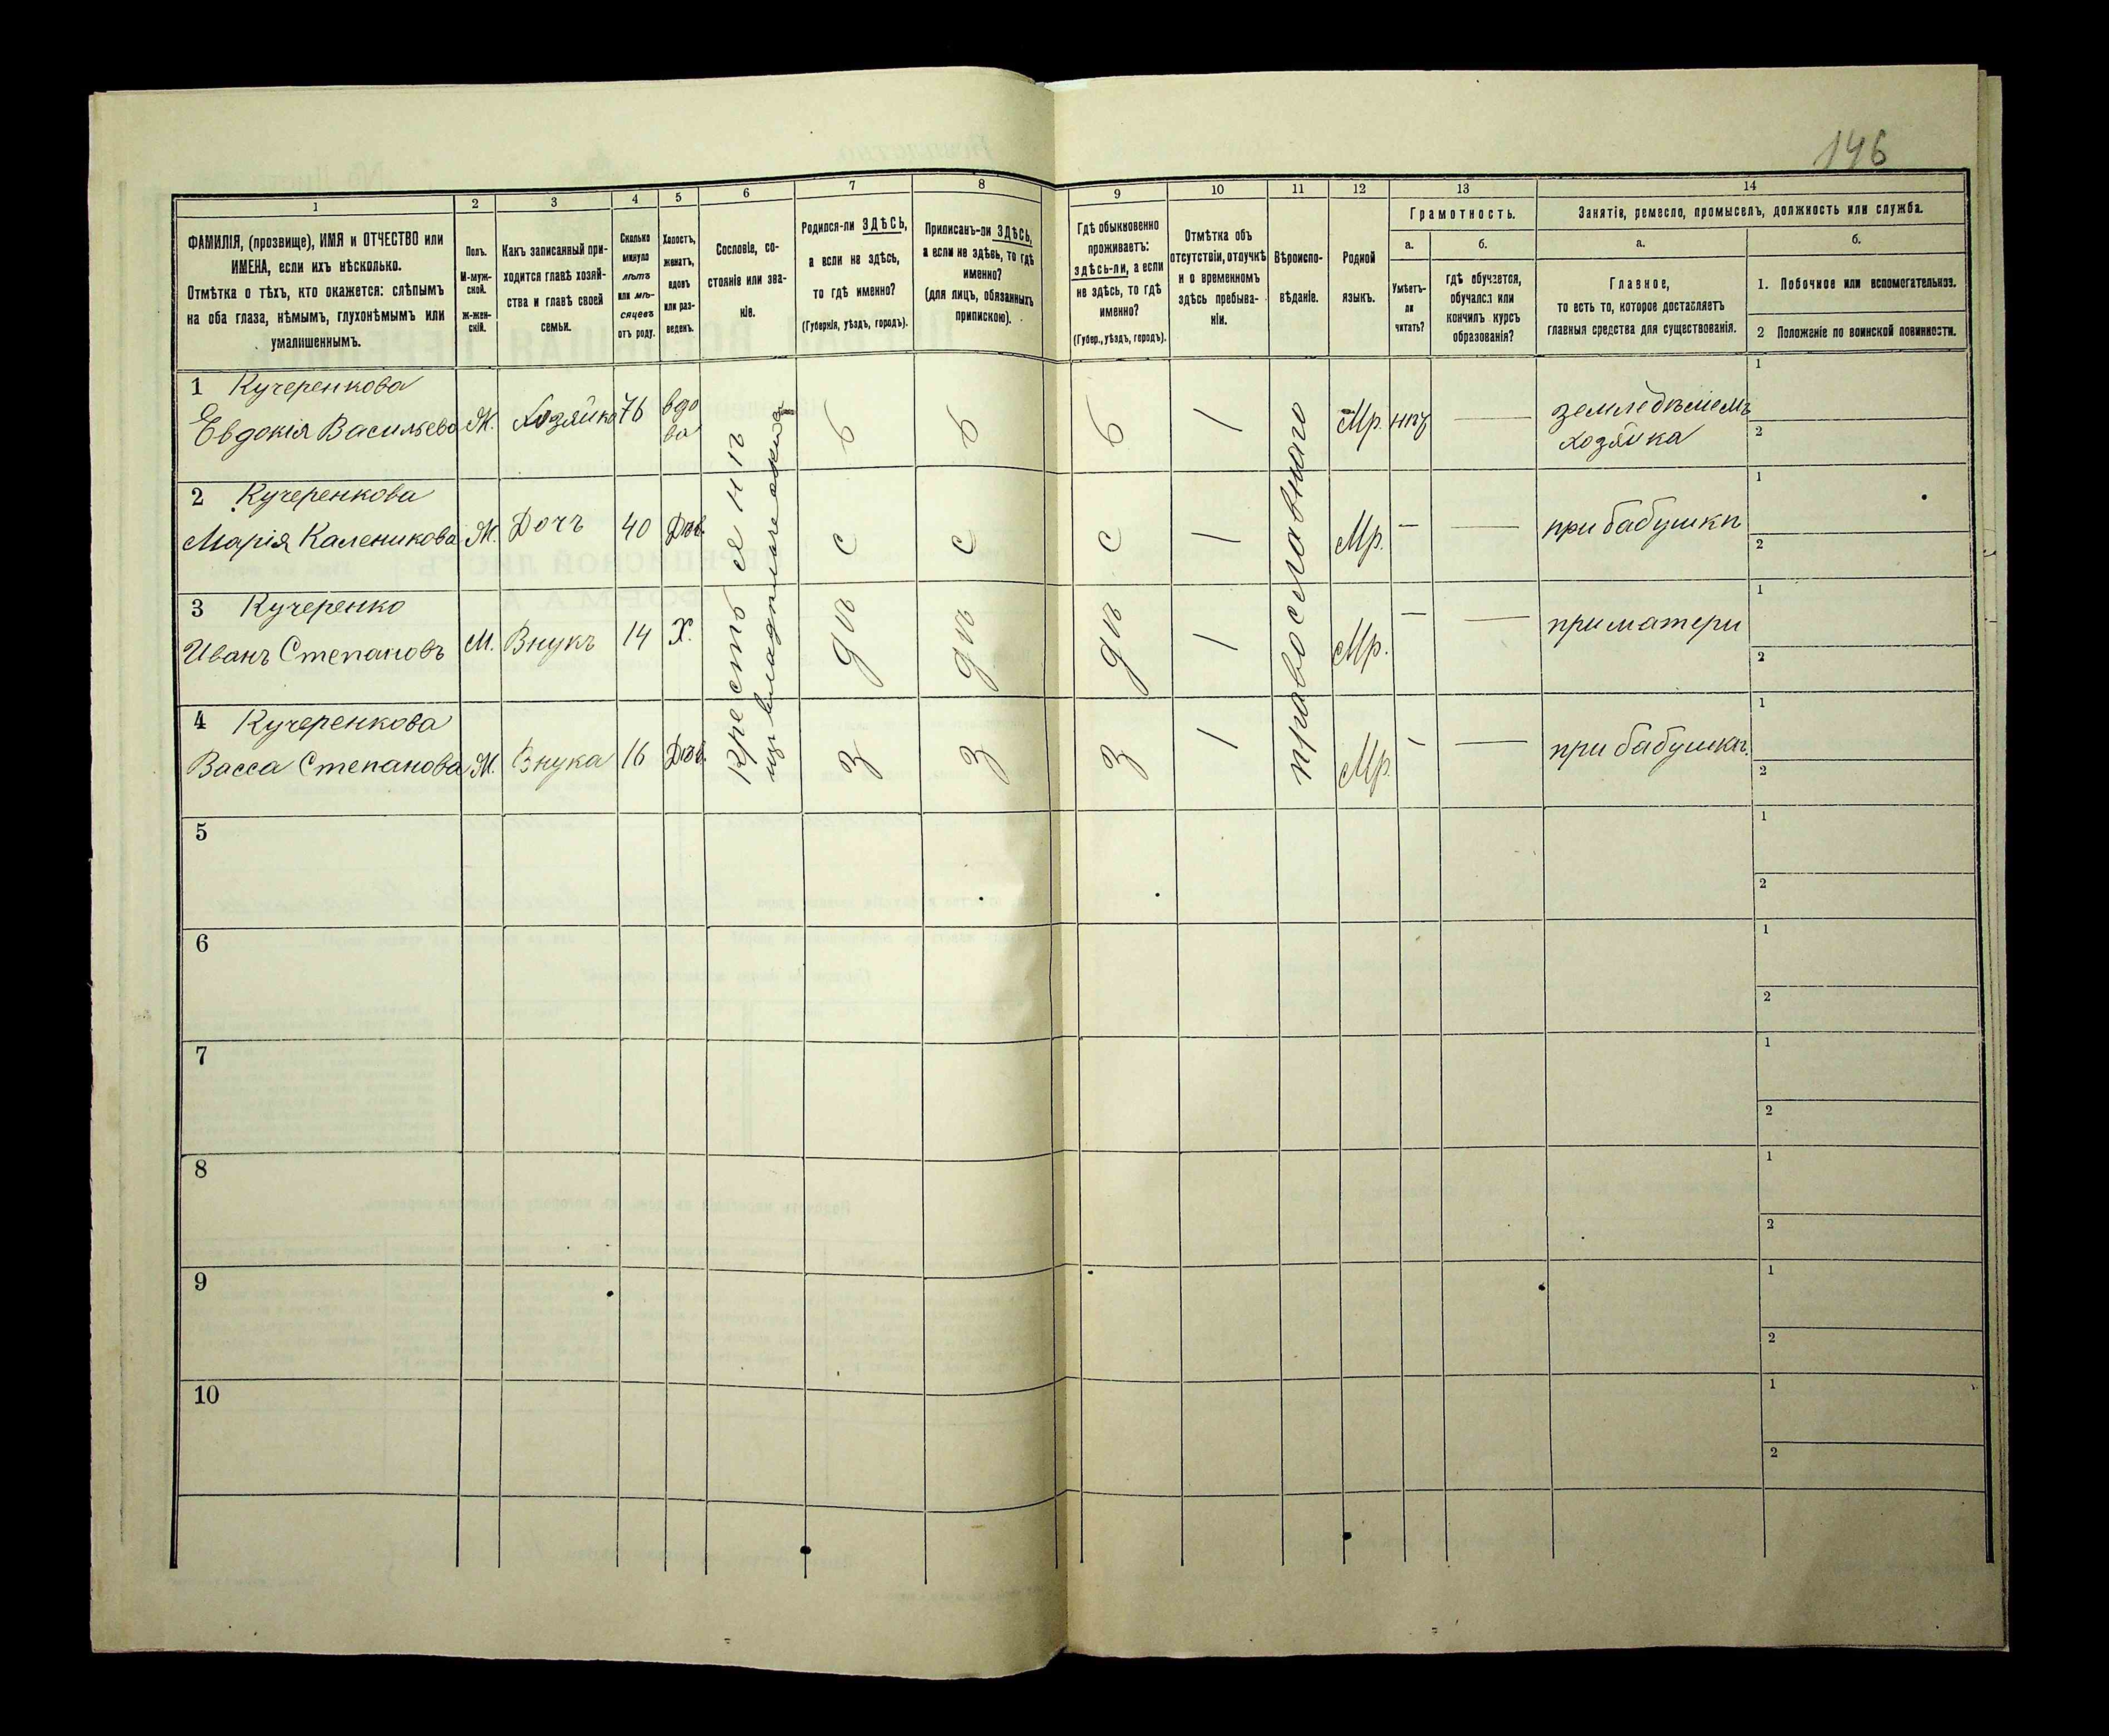 146
1
2
3
4
5
6
7
8
9
10
11
12
13
14
ФАМИЛІЯ, (прозвище), ИМЯ и ОТЧЕСТВО или
ИМЕНА, если ихъ нѣсколько.
Отмѣтка о тѣхъ, кто окажется: слѣпымъ
на оба глаза, нѣмымъ, глухонѣмымъ или
умалишеннымъ.
Полъ.
М-муж-
ской.
Ж-жен-
скій.
Какъ записанный при-
ходится главѣ хозяй-
ства и главѣ своей
семьи.
Сколько
минуло
лѣтъ
или мѣ-
сяцевъ
отъ роду.
Холостъ,
женатъ,
вдовъ
или раз-
веденъ.
Сословіе, со-
стояніе или зва-
ніе.
Родился-ли ЗДѢСЬ,
а если не здѣсь,
то гдѣ именно?
(Губернія, уѣздъ, городъ).
Приписанъ-ли ЗДѢСЬ,
а если не здѣсь, то гдѣ
именно?
(для лицъ, обязанныхъ
припискою).
Гдѣ обыкновенно
проживаетъ:
здѣсь-ли, а если
не здѣсь, то гдѣ
именно?
(Губер., уѣздъ, городъ).
Отмѣтка объ
отсутствіи, отлучкѣ
и о временномъ
здѣсь пребыва-
ніи.
Вѣроиспо-
вѣданіе.
Родной
языкъ.
Грамотность.
а.
б.
Умѣетъ-
ли
читать?
Гдѣ обучается,
обучался или
кончилъ курсъ
образованія?
Занятіе, ремесло, промыселъ, должность или служба.
а.
б.
Главное,
то есть то, которое доставляетъ
главныя средства для существованія.
1. Побочное или вспомогательное.
2 Положеніе по воинской повинности.
1 Кучеренкова
Евдокія Васильева Ж. Хозяйка 76 вдо
ва
Мр. нѣт земледѣлiемъ
хозяйка
1
2
2 Кучеренкова
Марія Каленикова Ж. Дочь 40 Дѣв. Мр. — — при бабушкѣ
1
2
3 Кучеренко
Иванъ Степановъ М. Внукъ 14 Х. Мр. — — при матери
1
2
4 Кучеренкова
Васса Степанова Ж. Внука 16 Дѣв. Мр. — — при бабушкѣ.
1
2
Крестьянѣ
изъ
здѣсь
здѣсь
здѣсь
православного
5
1
2
6
1
2
7
1
2
8
1
2
9
1
2
10
1
2